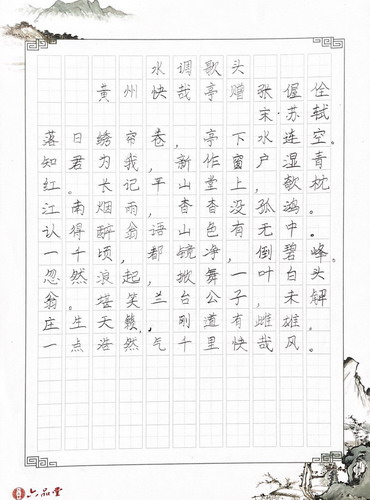 水调歌头
黄州快哉亭赠张偓佺
宋·苏轼
落日绣帘卷，亭下水连空。
知君为我，新作窗户湿青
红。长记平山堂上，欹枕
江南烟雨，杳杳没孤鸿。
认得醉翁语山色有无中。
一千顷，都镜净，倒碧峰。
忽然浪起，掀舞一叶白头
翁。堪笑兰台公子，未解
庄生天籁，刚道有雌雄。
一点浩然气千里快哉风。
六品堂